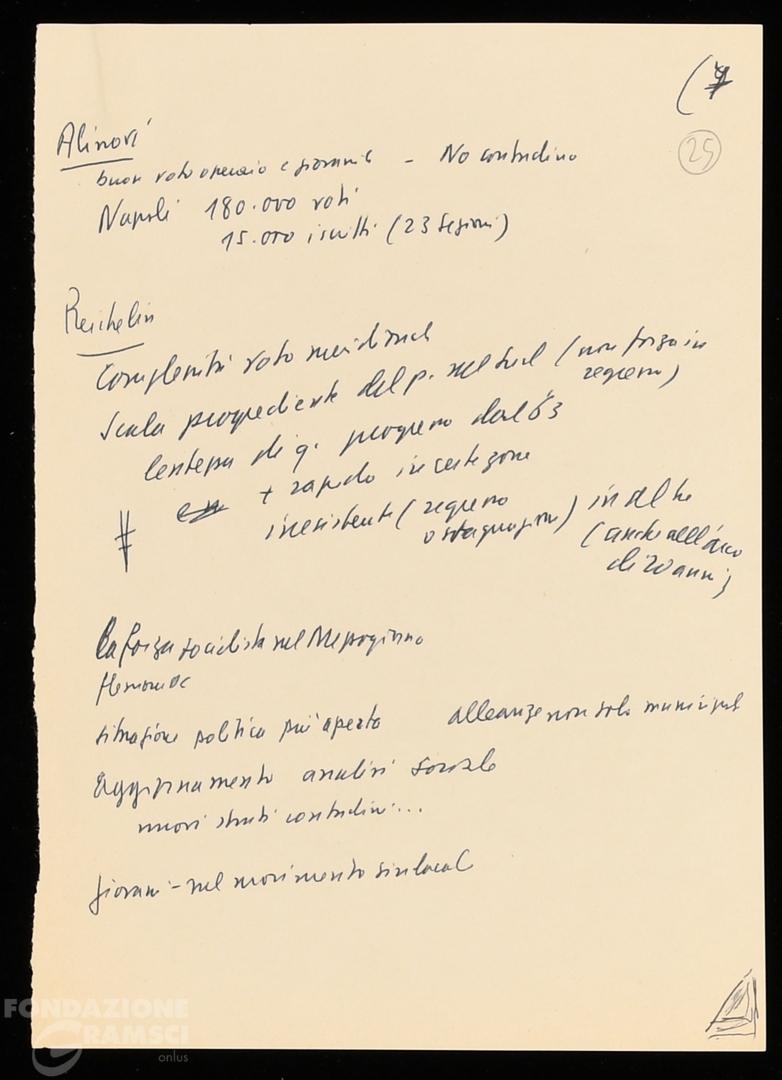 (7
25
Alinovi
buon voto operaio e giovanile - No contadino
Napoli 180.000 voti
15.000 iscritti (23 sezioni)
Reichelin
Complessità voto meridionale
Scala progrediente del p. nel Sud (non forza in
regresso)
lentezza di q. progresso dal 63
+ rapido in certe zone
inesistente (regresso
o stagnazione) in altre
(anche nell'arco
di 20 anni)
La forza socialista nel Mezzogiorno
situazione politica più aperta alleanze non solo municipali
Aggiornamento analisi sociale
nuovi strati contadini...
giovani - nel movimento sindacale
FONDAZIONE
GRAMSCI
onlus